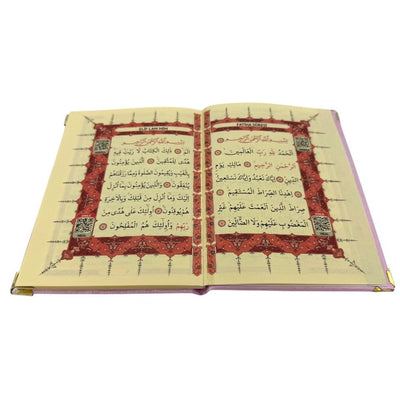 FATİHA SÛRESİ
بِسْمِ اللّٰهِ الرَّحْمٰنِ الرَّحِيمِ
اَلْحَمْدُ لِلّٰهِ رَبِّ الْعَالَمِينَ
اَلرَّحْمٰنِ الرَّحِيمِ مَالِكِ يَوْمِ
الدِّينِ اِيَّاكَ نَعْبُدُ وَاِيَّاكَ نَسْتَعِينُ
اِهْدِنَا الصِّرَاطَ الْمُسْتَقِيمَ
صِرَاطَ الَّذِينَ اَنْعَمْتَ عَلَيْهِمْ غَيْرِ
الْمَغْضُوبِ عَلَيْهِمْ وَلَا الضَّالِّينَ
ELİF LAM MİM
بِسْمِ اللّٰهِ الرَّحْمٰنِ الرَّحِيمِ
الٓمٓ ذٰلِكَ الْكِتَابُ لَا رَيْبَ فِيهِ
هُدًى لِلْمُتَّقِينَ اَلَّذِينَ يُؤْمِنُونَ
بِالْغَيْبِ وَيُقِيمُونَ الصَّلٰوةَ وَمِمَّا رَزَقْنَاهُمْ
يُنْفِقُونَ وَالَّذِينَ يُؤْمِنُونَ بِمَا اُنْزِلَ
اِلَيْكَ وَمَا اُنْزِلَ مِنْ قَبْلِكَ وَبِالْاٰخِرَةِ
هُمْ يُوقِنُونَ اُولٰئِكَ عَلٰى هُدًى مِنْ
رَبِّهِمْ وَاُولٰئِكَ هُمُ الْمُفْلِحُونَ